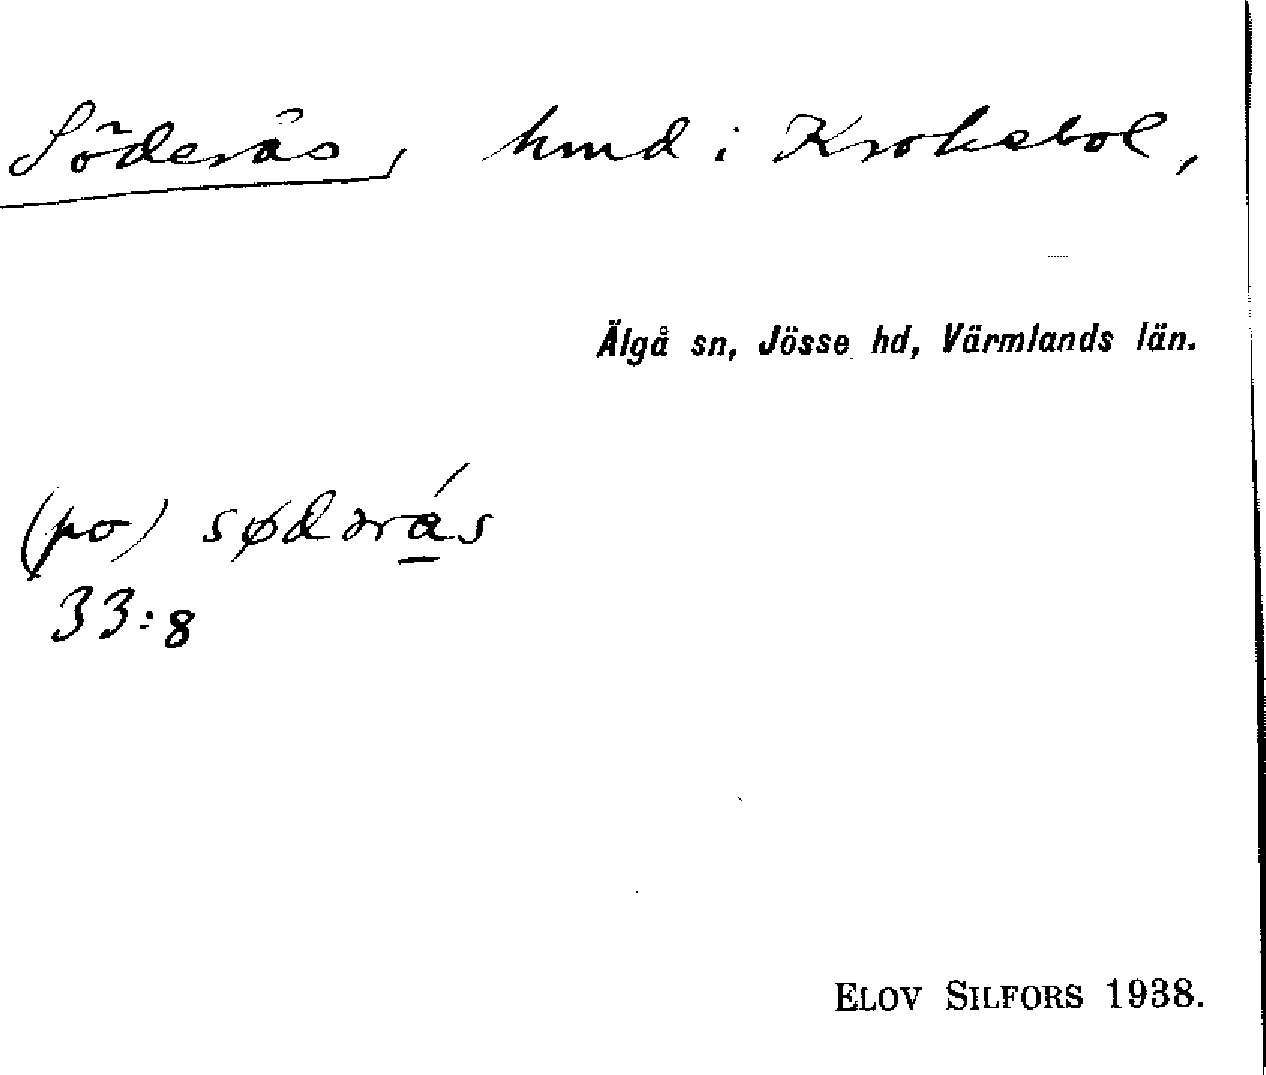 Söderås, hmd i Krokebol,
Älgå sn, Jösse hd, Värmlands län.
(po) sødərás
33:8
ELOV SILFORS 1938.